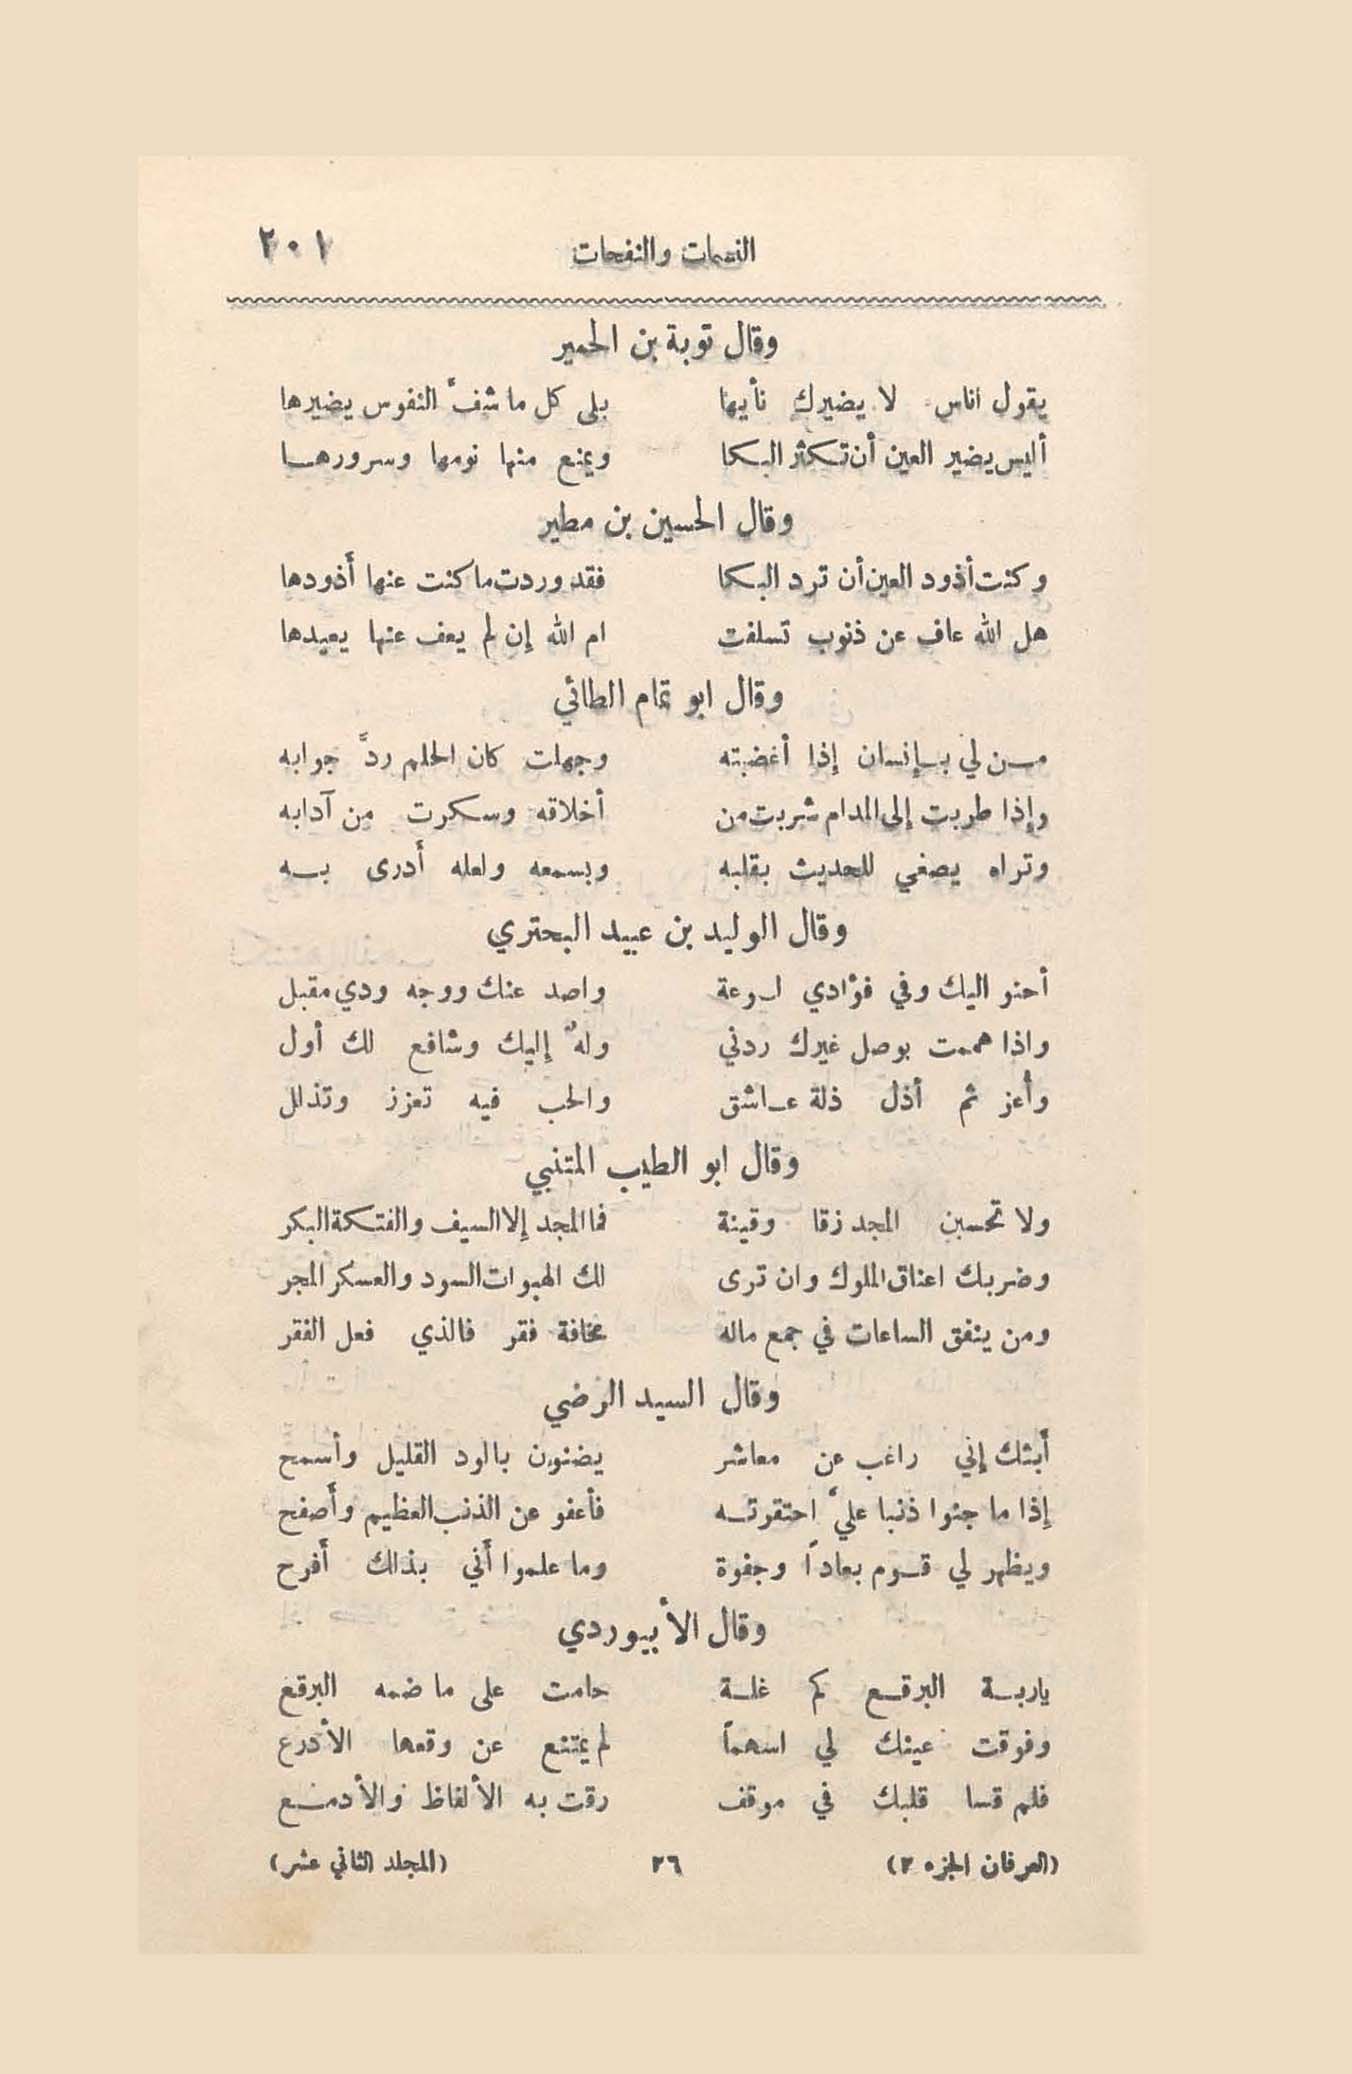 النسمات والنفحات ٢٠١
وقال توبة بن الحمير
يقول اناس لا يضيرك نأيها بلى كل ما شفَّ النفوس يضيرها
أليس يضير العين أن تكثر البكا ويمنع منها نومها وسرورهـا
وقال الحسين بن مطير
وكنت أذود العين أن ترد البكا فقد وردت ما كنت عنها أذودها
هل الله عاف عن ذنوب تسلفت ام الله إن لم يعف عنها يعيدها
وقال ابو تمام الطائي
مـن لي بـإنسان إذا أغضبته وجهلت كان الحلم ردَّ جوابه
وإذا طربت إلى المدام شربت من أخلاقه وسكرت من آدابه
وتراه يصغي للحديث بقلبه وبسمعه ولعله أدرى بـه
وقال الوليد بن عبيد البحتري
أحنو اليك وفي فؤادي لـوعة واصد عنك ووجه ودي مقبل
واذا هممت بوصل غيرك ردني ولهٌ إليك وشافع لك أول
وأعز ثم أذل ذلة عـاشق والحب فيه تعزز وتذلل
وقال ابو الطيب المتنبي
ولا تحسبن المجد زقا وقينة فما المجد إلا السيف والفتكة البكر
وضربك اعناق الملوك وان ترى لك الهبوات السود والعسكر المجر
ومن ينفق الساعات في جمع ماله مخافة فقر فالذي فعل الفقر
وقال السيد الرضي
أبثك إني راغب عن معاشر يضنون بالود القليل وأسمح
إذا ما جنوا ذنبا عليَّ احتقرتـه فأعفو عن الذنب العظيم وأصفح
ويظهر لي قـوم بعاداً وجفوة وما علموا أني بذلك أفرح
وقال الأبيوردي
ياربـة البرقـع كم غلـة حامت على ما ضمه البرقع
وفوقت عينك لي اسهماً لم يمتنع عن وقعها الأدرع
فلم قسا قلبك في موقف رقت به الألفاظ والأدمـع
(العرفان الجزء ٢) ٢٦ (المجلد الثاني عشر)